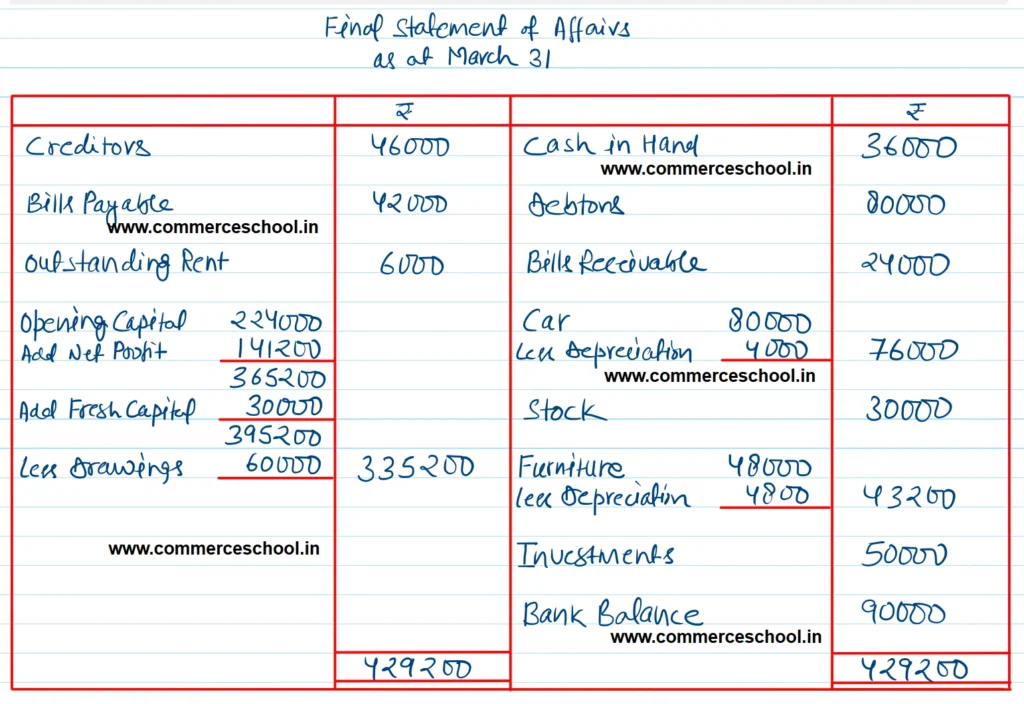 Final Statement of Affairs
as at March 31
₹ ₹
Creditors 46000 Cash in Hand 36000
www.commerceschool.in
Bills Payable 42000 Debtors 80000
www.commerceschool.in
Outstanding Rent 6000 Bills Receivable 24000
Opening Capital 224000 Car 80000
Add Net Profit 141200 Less Depreciation 4000 76000
365200 www.commerceschool.in
Add Fresh Capital 30000 Stock 30000
395200
Less Drawings 60000 335200 Furniture 48000
Less Depreciation 4800 43200
www.commerceschool.in Investments 50000
Bank Balance 90000
www.commerceschool.in
429200 429200